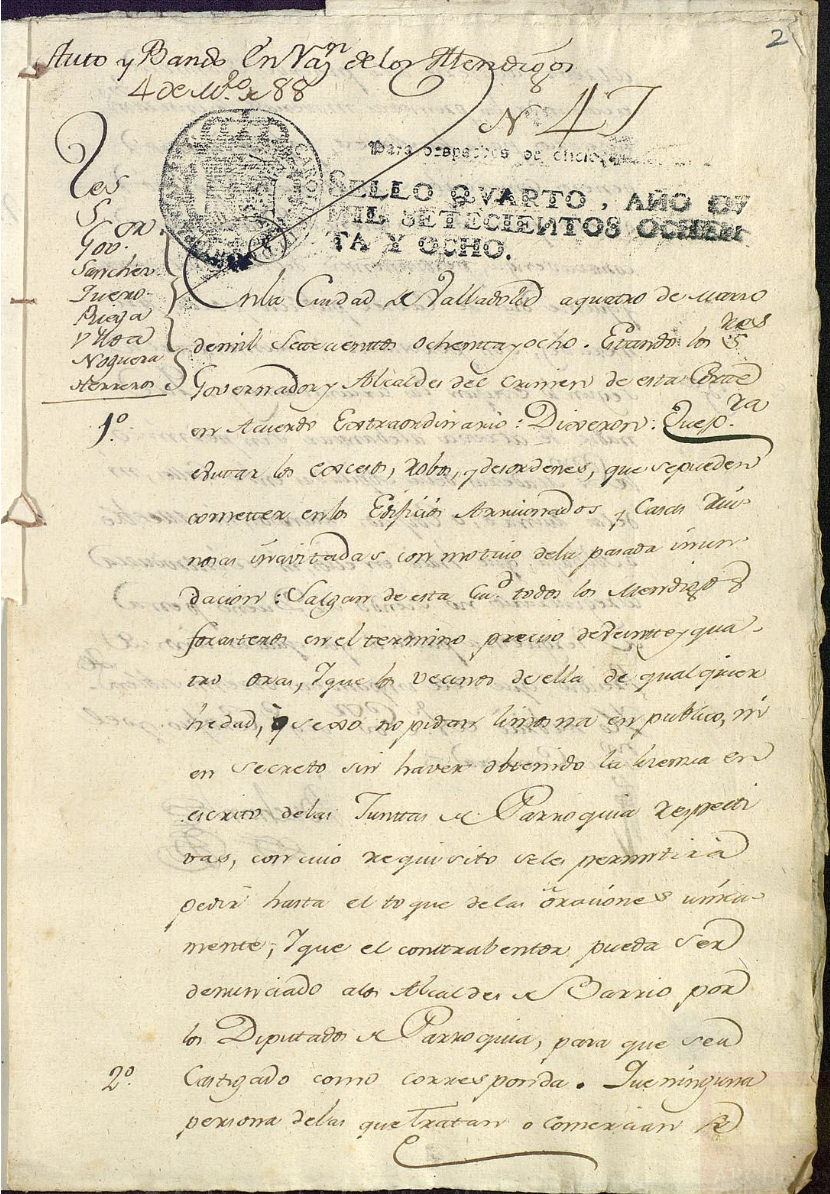 2
Auto y Bando En Raz.n de los Mendigos
4 de M.zo de 88
N. 47
Para despachos de oficio
SELLO QVARTO, AÑO DE
MIL SETECIENTOS OCHEN
TA Y OCHO.
S.ores
Gov.or
Sanchez
Tuero
Riega
y Roca
Noguera
Herreros
En la Ciudad de Valladolid a quatro de Marzo
de mil Setecientos ochenta y ocho. Estando los S.res
Governador y Alcaldes del crimen de esta Corte
1.º
en Acuerdo Extraordinario: Dixeron: Que p.ra
evitar los excesos, robos, y desordenes, que se pueden
cometter en los Edificios Arruinados y Casas Rui-
nosas inavitadas con motivo de la pasada inun-
dacion: Salgan de esta Ciu.d todos los Mendigos
forasteros en el termino preciso de veinte y qua-
tro oras, Y que los vecinos de ella de qualquier
hedad, y sexo no pidan limosna en publico, ni
en secreto sin haver obtenido la licencia en
escrito de las Juntas de Parroquia respecti
vas, con cuio requisito se les permitirá
pedir hasta el toque de las oraciones unica-
mente; Y que el contrabentor pueda ser
denunciado a los Alcaldes de Barrio por
los Diputados de Parroquia, para que sea
2.º
Castigado como corresponda. Que ninguna
persona de las que Tratan o comercian